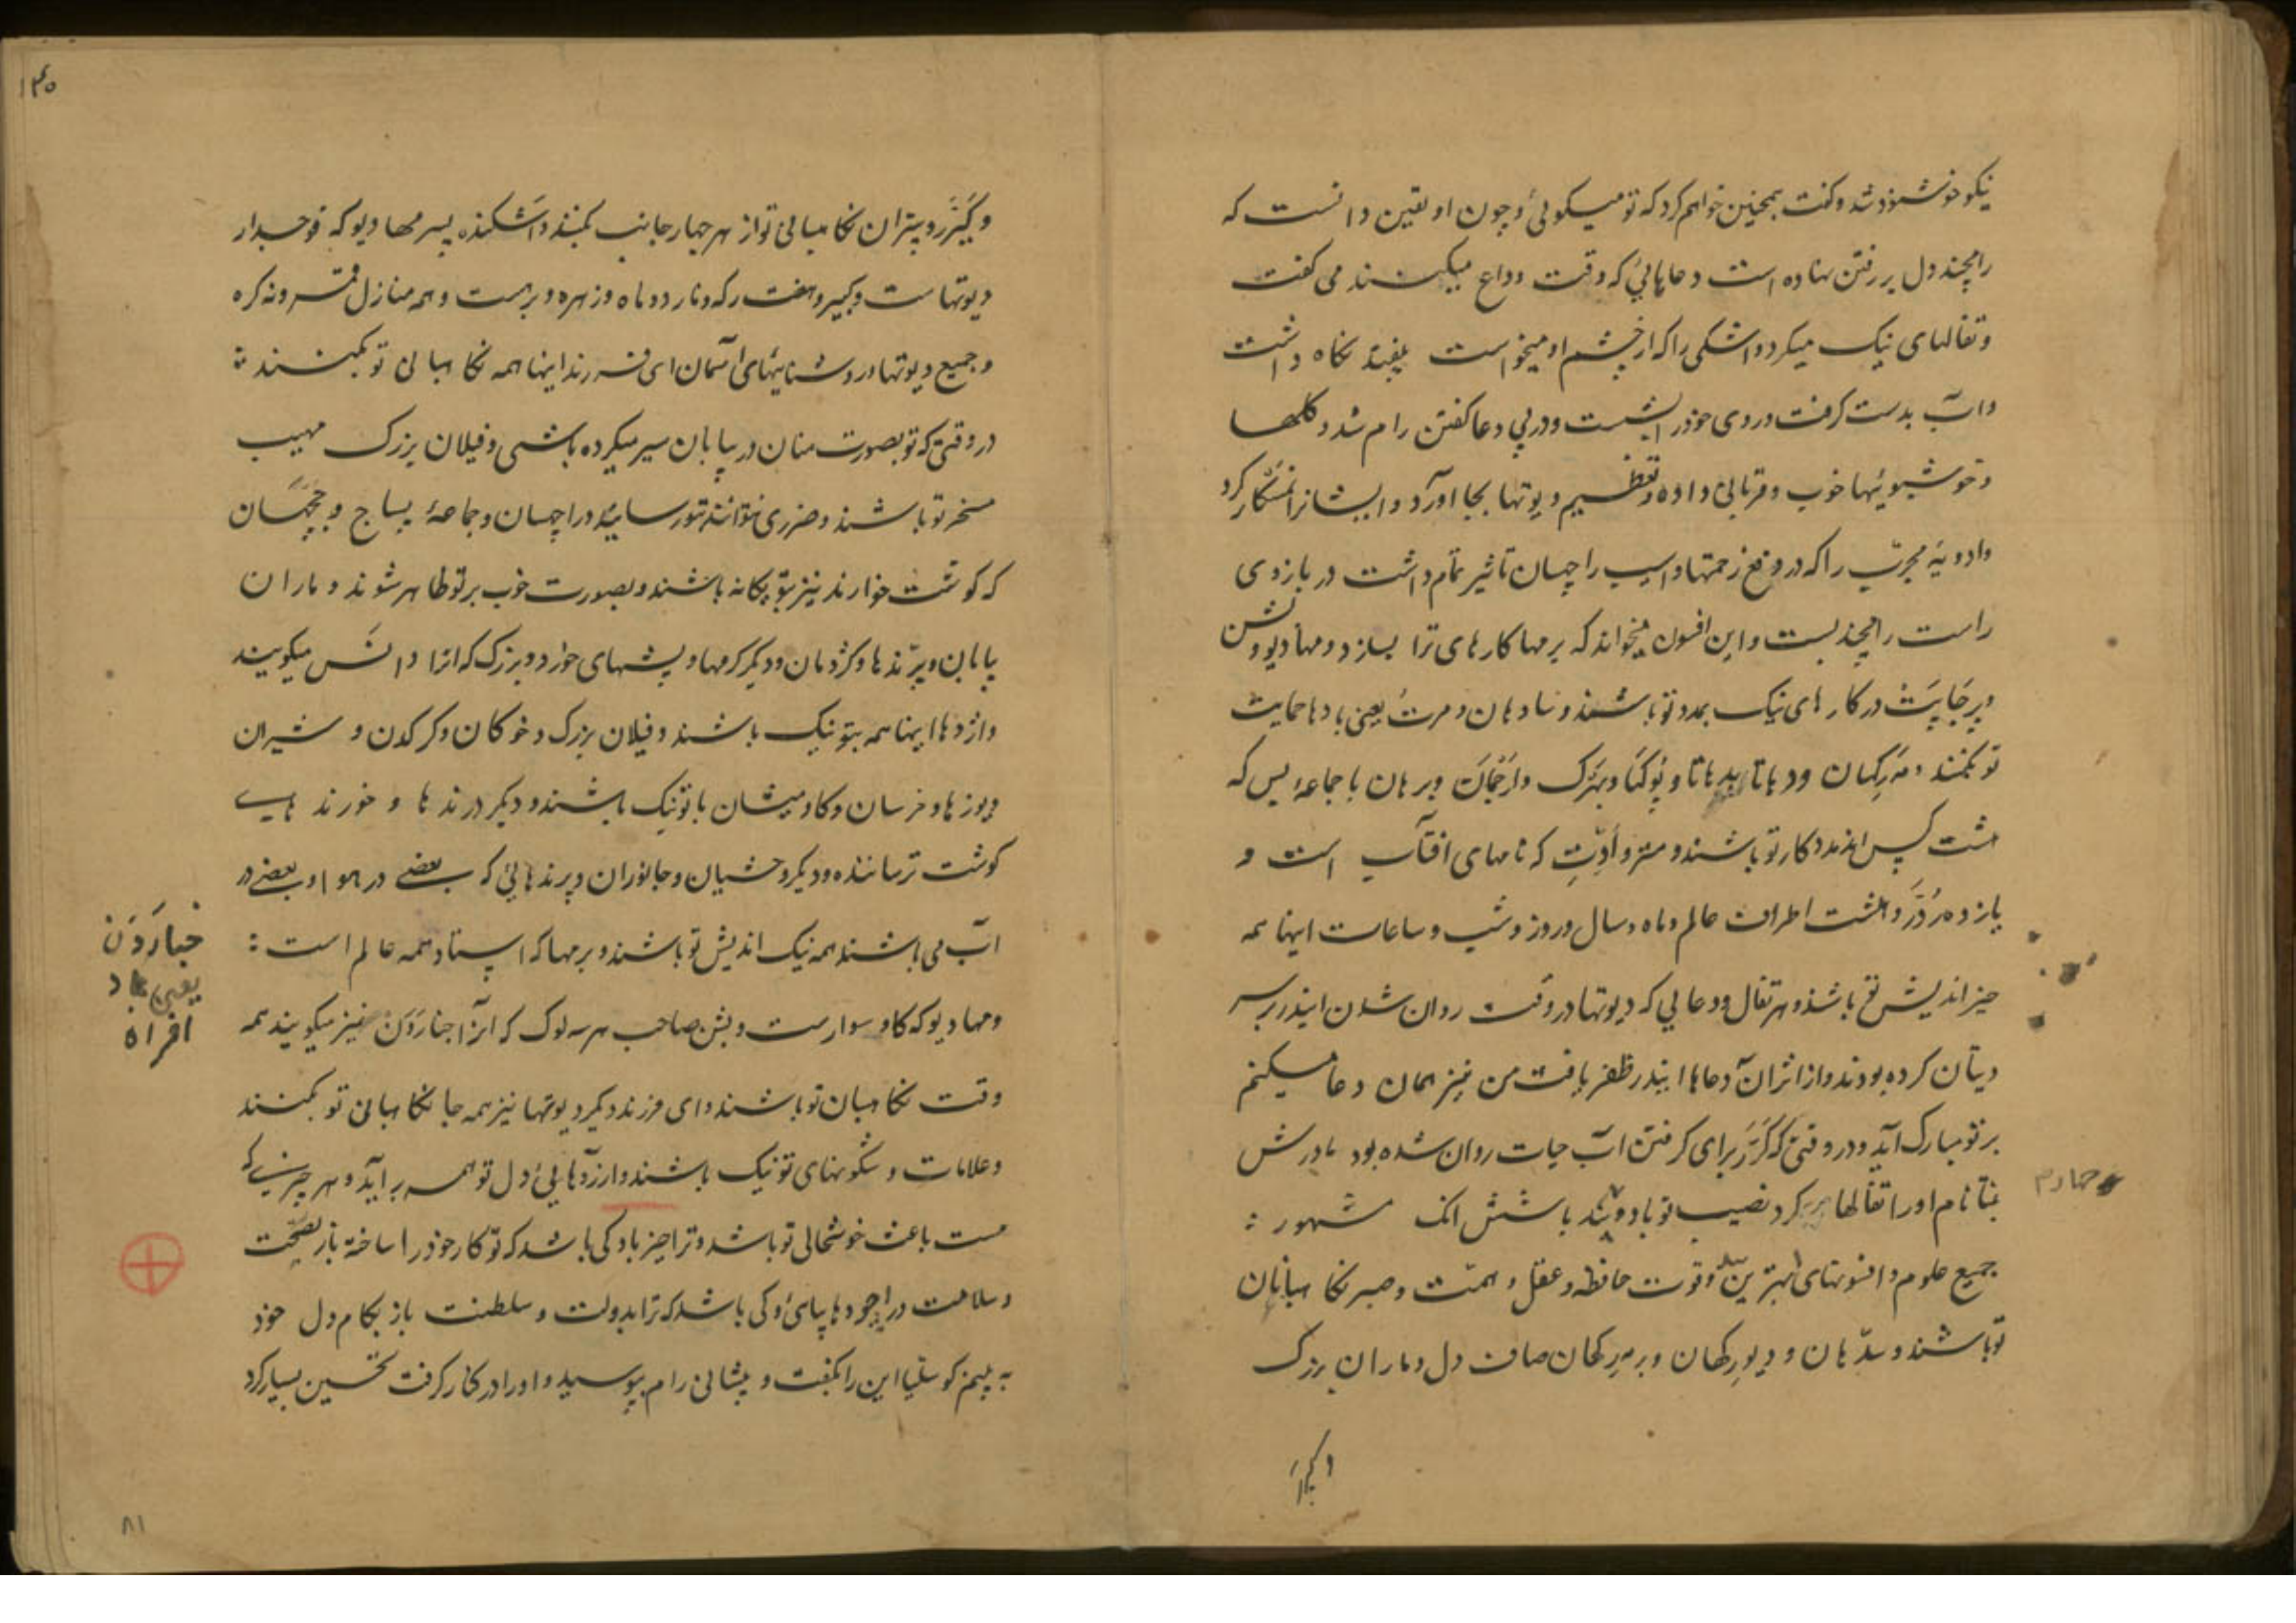 نیکو خوشنود شد و گفت همچنین خواهم کرد که تو میگوئی و چون او یقین دانست که
رامچند دل بر رفتن نهاده است دعاهائی که وقت وداع میکنند می گفت
و تفالهای نیک میکرد و اشکی را که از چشم او میخواست نگاه داشت
و آب بدست گرفت و روی خود را شست و در پی دعا گفتن رام شد و گلها
و خوشبوئیها خوب و قربانی داده و تعظیم دیوتها بجا آورد و ایشانرا نمسکار کرد
و ادویهٔ مجرّب را که در دفع زحمتها و آسیب راچهسان تاثیر تمام داشت در بازوی
راست رامچند بست و این افسون میخواند که برمها کارهای ترا بسازد و مهادیو و بشن
و پرجاپت در کارهای نیک بمدد تو باشند و سادهان و مرت یعنی بادها حمایت
تو بکنند و مهرکهیان و دهاتا بدهاتا و پوکها و بهرک و ارجمان و برهان با جماعهٔ بس که
هشت کس اند مددکار تو باشند و متر و ادّت که نامهای آفتاب است و
یازده رُدّر و هشت اطراف عالم و ماه و سال و روز و شب و ساعات اینها همه
خیر اندیش تو باشند و هر تفال و دعایی که دیوتها در وقت روان شدن ایندر بر سر
دیتان کرده بودند و از اثر آن دعاها ایندر ظفر یافت من نیز همان دعا میکنم
بر تو مبارک آید و در وقتی که گرر برای گرفتن آب حیات روان شده بود مادرش
بنتا نام او را تفالها کرد نصیب تو باد و بید با شش انک مشهور :
جمیع علوم و افسونهای بهترین و قوت حافظه و عقل و همت و صبر نگاهبانان
تو باشند و سدّهان و دیورکهان و برمهرکهان صاف دل و ماران بزرگ
چهارم
و کنّر
۱۴۰
و کنّر و پتران نگاهبانی تو از هر چهار جانب بکنند و اشکنده پسر مهادیو که فوجدار
دیوتها ست و کبیر و هفت رکه و نارد و ماه و زهره و برهست و همه منازل قمر و نه کره
و جمیع دیوتها و روشنائیهای آسمان ای فرزند اینها همه نگاهبانی تو بکنند :
در وقتی که تو بصورت منان در بیابان سیر میکرده باشی و فیلان بزرگ مهیب
مسخر تو باشند و ضرری نتوانند بتو رسانید و راچهسان و جماعهٔ پساج و جچهان
که گوشت خوارند نیز بتو یگانه باشند و بصورت خوب بر تو ظاهر شوند و ماران
بیابان و پرندها و کژدمان و دیگر کرمها و پشهای خورد و بزرگ که آنرا دانس میگویند
و اژدها اینها همه بتو نیک باشند و فیلان بزرگ و خوکان و کرکدن و شیران
و یوزها و خرسان و گاومیشان با تو نیک باشند و دیگر درندها و خورندهای
گوشت ترساننده و دیگر وحشیان و جانوران و پرندهائی که بعضی در هوا و بعضی در
آب می باشند همه نیک اندیش تو باشند و برمها که استاد همه عالم است :
و مهادیو که گاو سوارست و بشن صاحب هر سه لوک که آنرا جنارَدَن نیز میگویند همه
وقت نگاهبان تو باشند و ای فرزند دیگر دیوتها نیز همه جا نگاهبانی تو بکنند
و علامات و شگونهای تو نیک باشند و آرزوهایی دل تو همه بر آید و هر چیزی که
هست باعث خوشحالی تو باشد و ترا خیر باد کی باشد که تو کار خود را ساخته باز بصحت
و سلامت در اجودهیا بیائی و کی باشد که ترا بدولت و سلطنت باز بکام دل خود
به بینم کوسلیا این را بگفت و پیشانی رام ببوسید و او را در کنار گرفت تحسین بسیار کرد
جنارَدَن
یعنی
افراه
۸۱